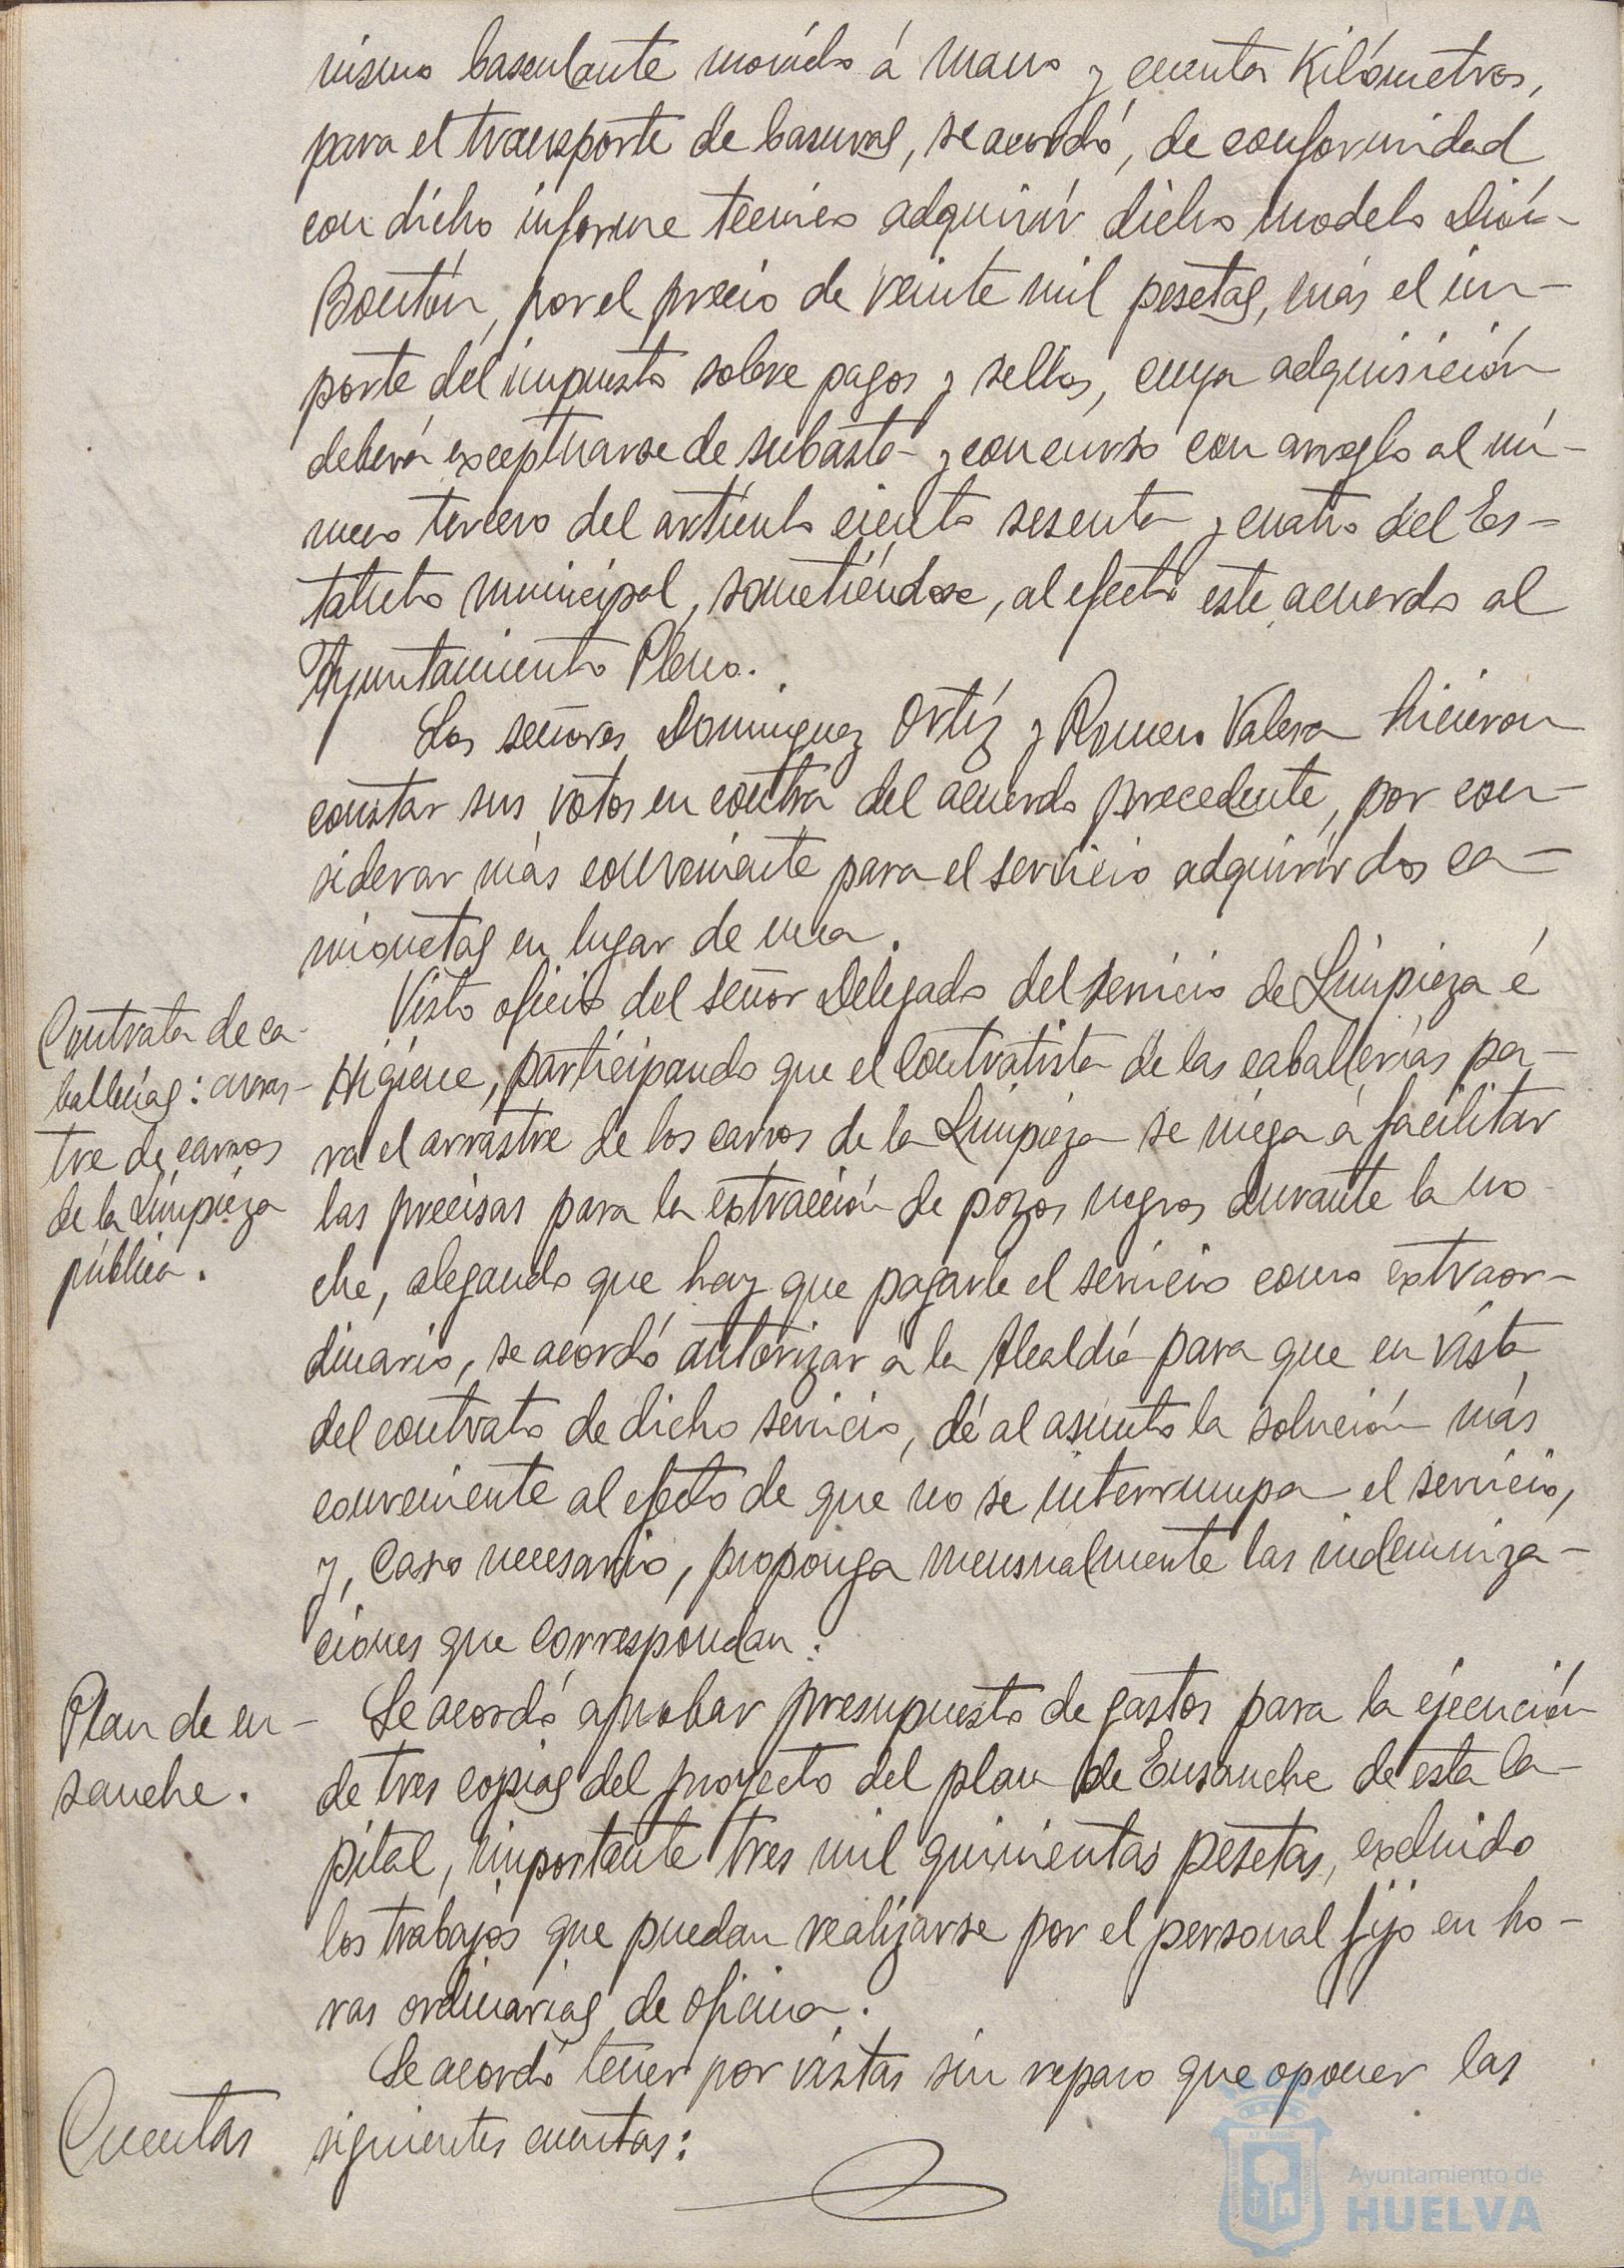 nismo basculante movido á mano y cuenta Kilómetros,
para el transporte de basuras, se acordó, de conformidad
con dicho informe técnico adquirir dicho modelo Dión-
Boutón, por el precio de veinte mil pesetas, más el im-
porte del impuesto sobre pagos y sellos, cuya adquisición
deberá exceptuarse de subasta y concurso con arreglo al nú-
mero tercero del artículo ciento sesenta y cuatro del Es-
tatuto municipal, sometiéndose, al efecto este acuerdo al
Ayuntamiento Pleno.
Los señores Dominguez Ortíz y Romero Valera hicieron
constar sus votos en contra del acuerdo precedente, por con-
siderar más conveniente para el servicio adquirir dos ca-
mionetas en lugar de una.
Contrata de ca-
ballerías: arras-
tre de carros
de la Limpieza
pública.
Visto oficio del señor Delegado del servicio de Limpieza é
Higiene, participando que el contratista de las caballerías pa-
ra el arrastre de los carros de la Limpieza se niega á facilitar
las precisas para la extracción de pozos negros durante la no
che, alegando que hay que pagarle el servicio como extraor-
dinario, se acordó autorizar á la Alcaldía para que en vista
del contrato de dicho servicio, dé al asunto la solución más
conveniente al efecto de que no se interrumpa el servicio,
y, caso necesario, proponga mensualmente las indemniza-
ciones que correspondan.
Plan de en-
sanche.
Se acordó aprobar presupuesto de gastos para la ejecución
de tres copias del proyecto del plan de Ensanche de esta Ca-
pital, importante tres mil quinientas pesetas, excluido
los trabajos que puedan realizarse por el personal fijo en ho-
ras ordinarias de oficina.
Cuentas
Se acordó tener por vistas sin reparo que oponer las
siguientes cuentas:
Ayuntamiento de
HUELVA